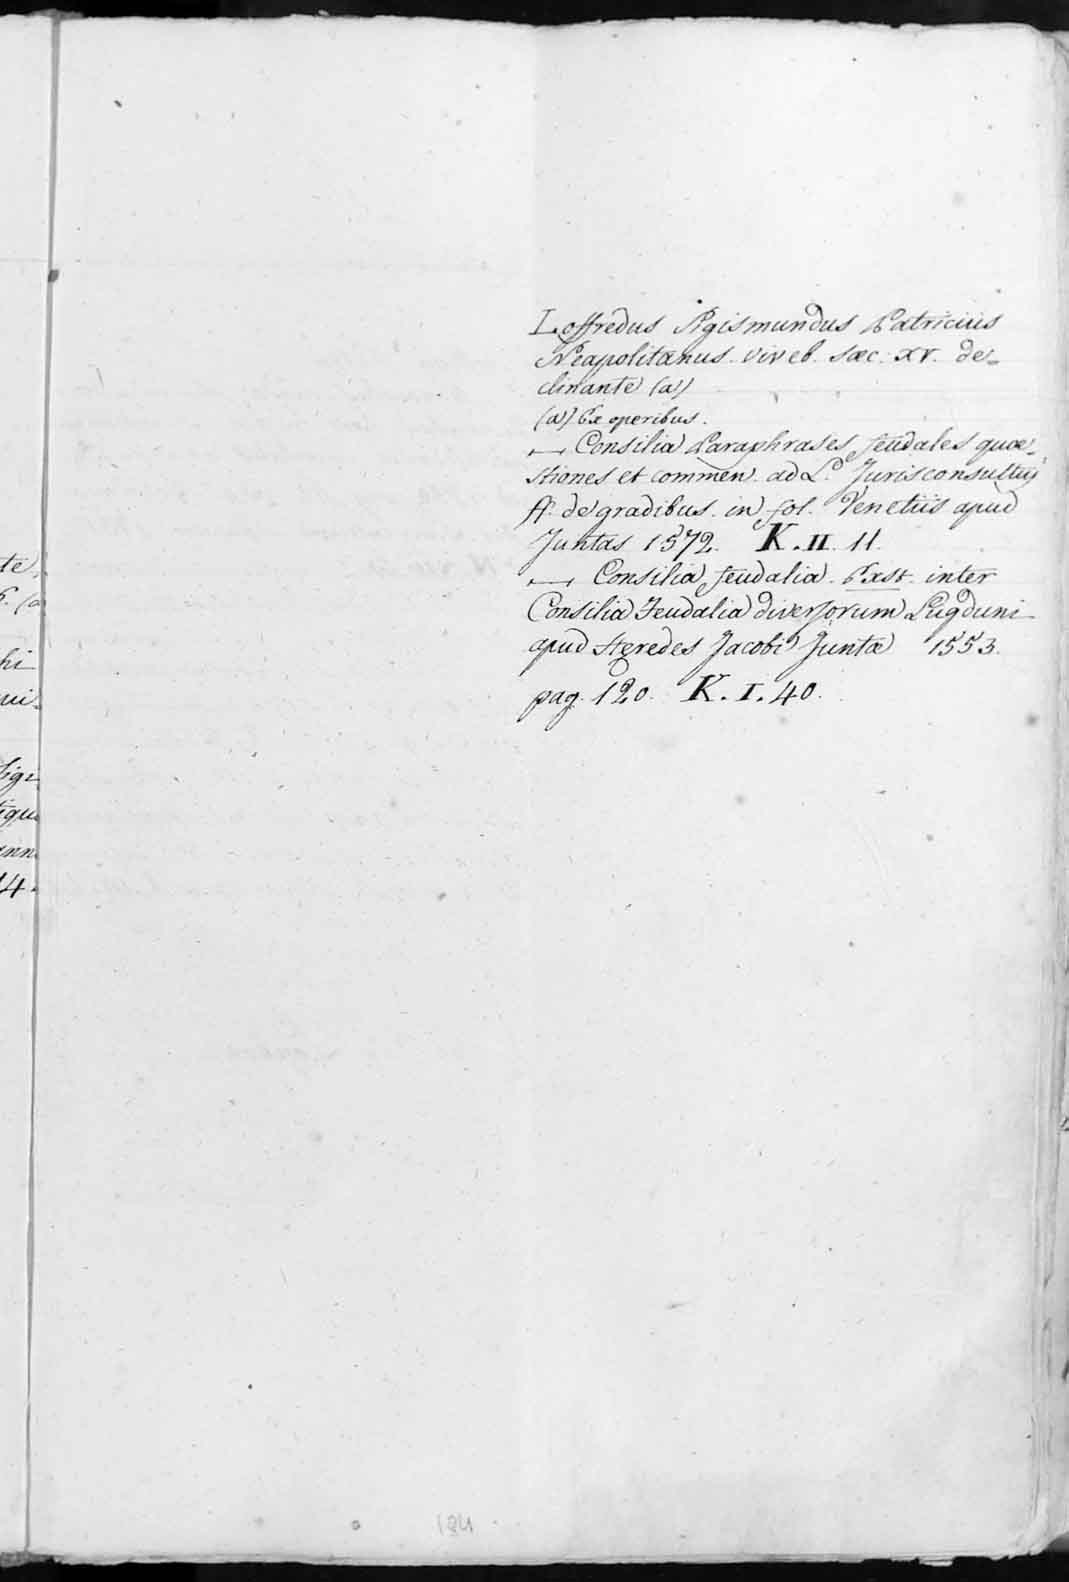 Loffredus Sigismundus Patricius
Neapolitanus. viveb. sæc. XV. de=
clinante (a)
(a) Ex operibus.
— Consilia Paraphrases feudales quæ=
stiones et commen. ad L. Jurisconsultus
ff. de gradibus. in fol. Venetiis apud
Juntas 1572. K. II. 11.
— Consilia feudalia. Exst. inter
Consilia Feudalia diversorum Lugduni
apud Heredes Jacobi Juntæ 1553.
pag. 120. K. I. 40.
te
(a
hi
ni=
figi
iqu
inn
14.
124